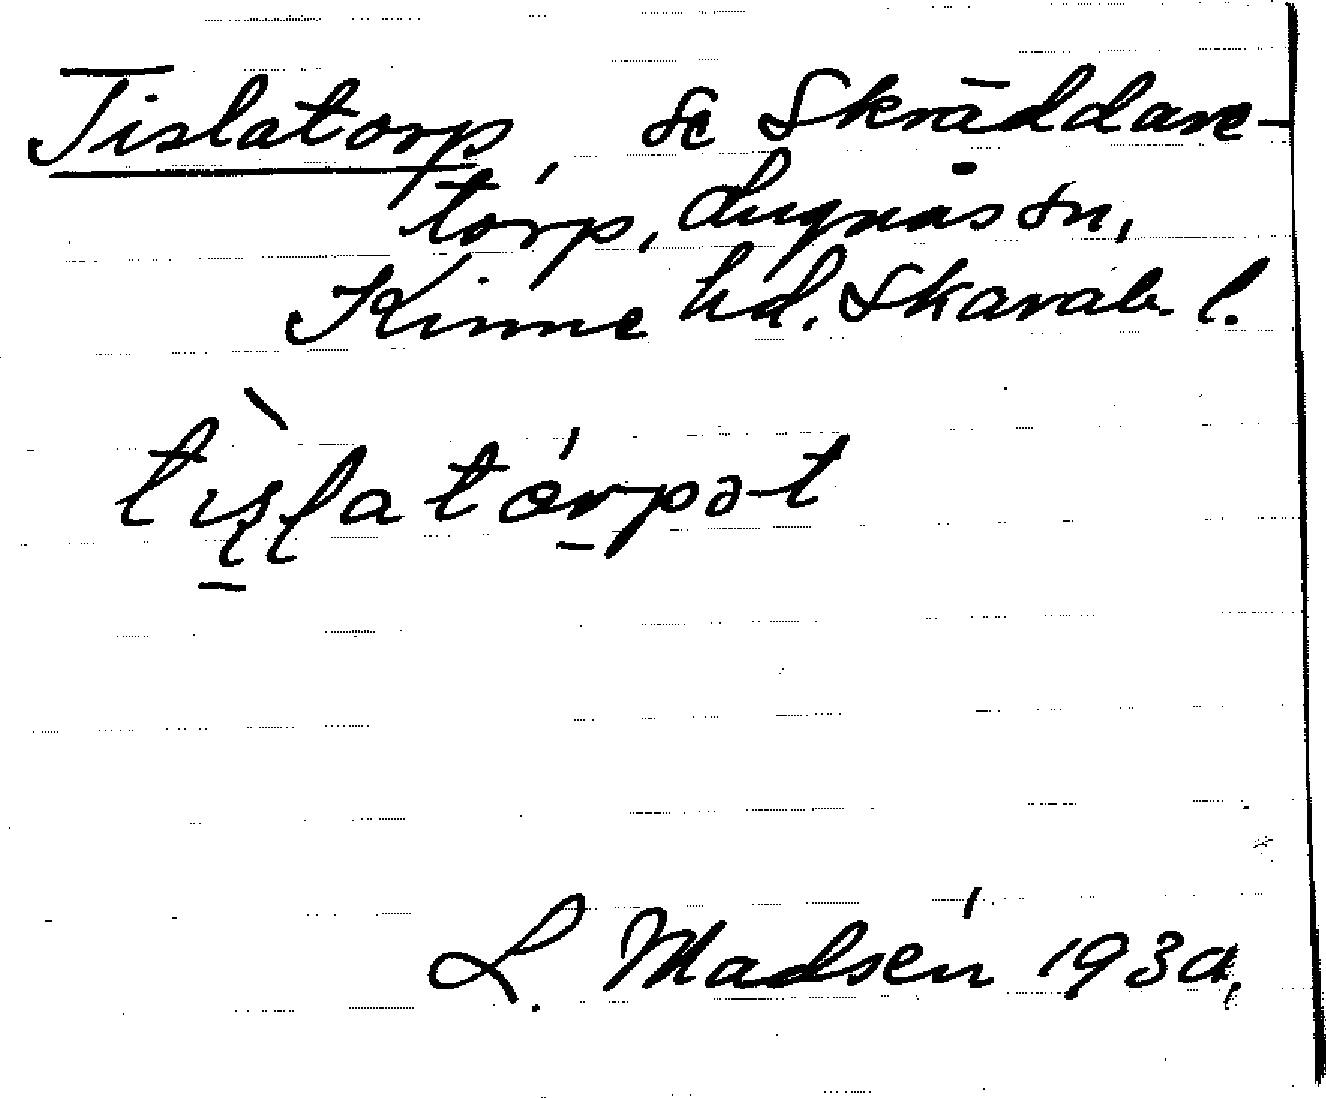 Tislatorp, se Skräddare-
torp, Lugnås sn,
Kinne hd. Skarab. l.
tìslatórpət
L. Madsén 1930.